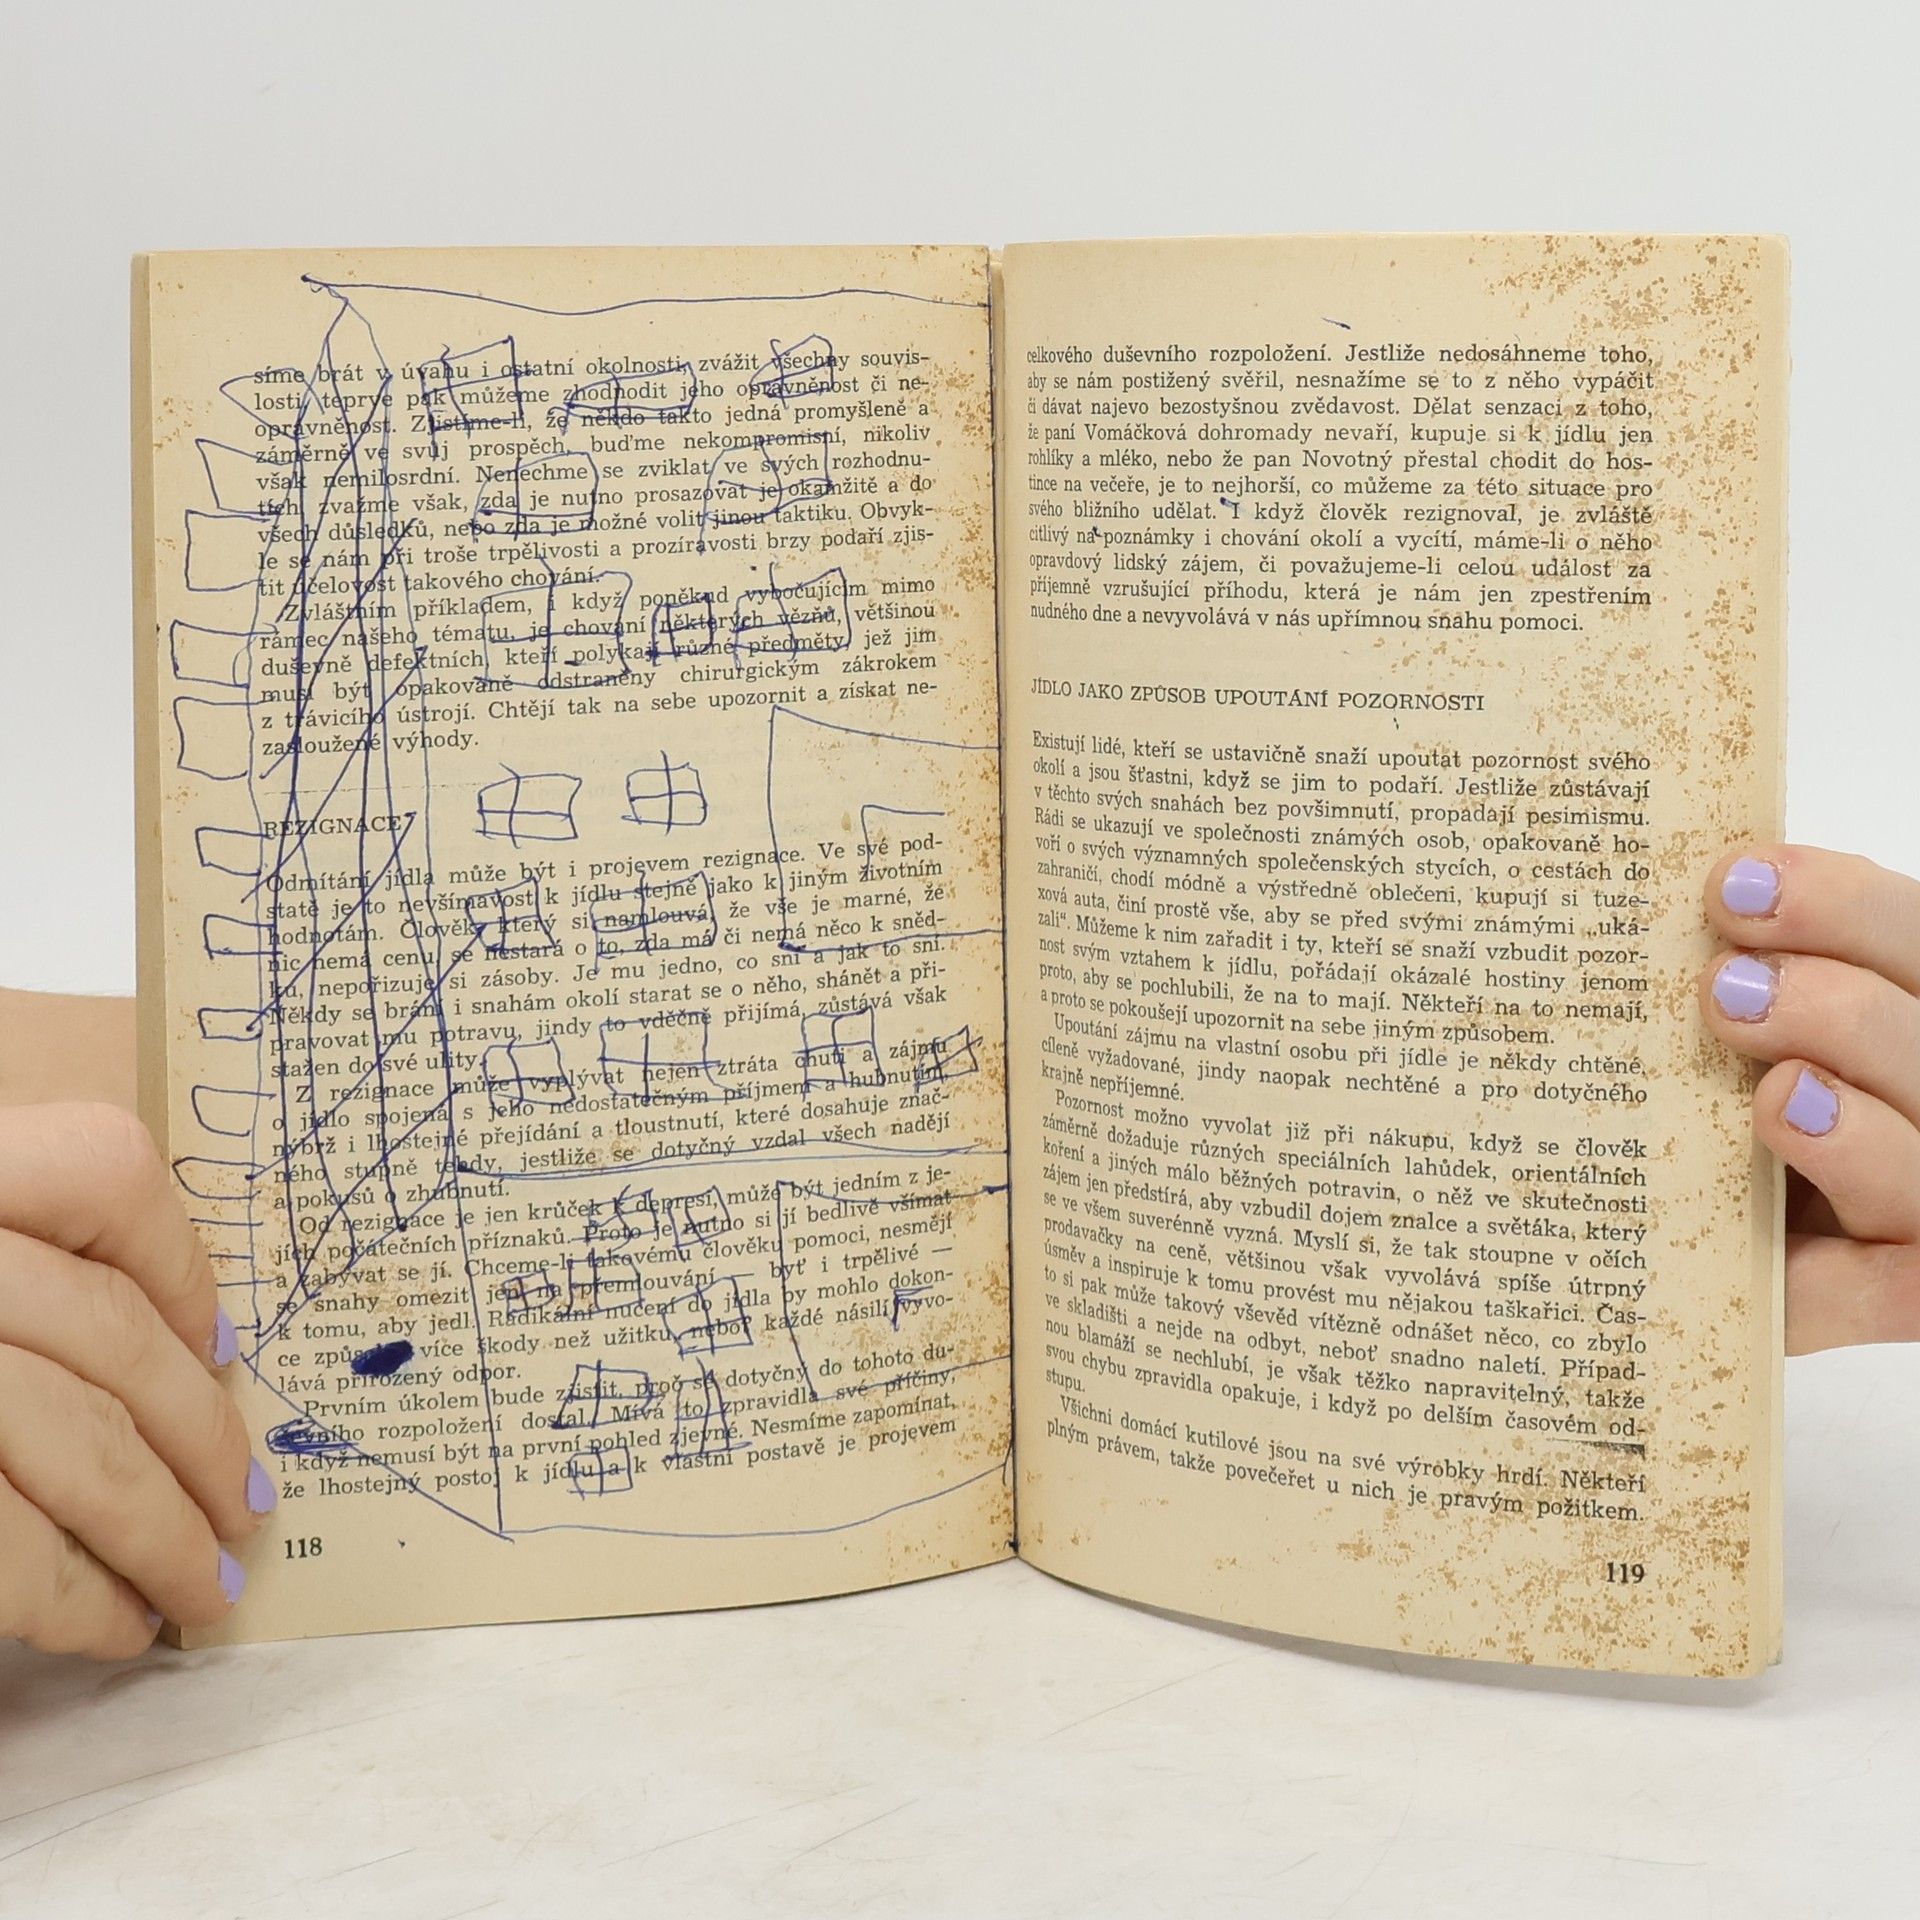 síme brát v úvahu i ostatní okolnosti, zvážit všechny souvis-
losti, teprve pak můžeme zhodnodit jeho oprávněnost či ne-
oprávněnost. Zjistíme-li, že někdo takto jedná promyšleně a
záměrně ve svůj prospěch, buďme nekompromisní, nikoliv
však nemilosrdní. Nenechme se zviklat ve svých rozhodnu-
tích, zvažme však, zda je nutno prosazovat je okamžitě a do
všech důsledků, nebo zda je možné volit jinou taktiku. Obvyk-
le se nám při troše trpělivosti a prozíravosti brzy podaří zjis-
tit účelovost takového chování.
Zvláštním příkladem, i když poněkud vybočujícím mimo
rámec našeho tématu, je chování některých vězňů, většinou
duševně defektních, kteří polykají různé předměty, jež jim
musí být opakovaně odstraněny chirurgickým zákrokem
z trávicího ústrojí. Chtějí tak na sebe upozornit a získat ne-
zasloužené výhody.
REZIGNACE
Odmítání jídla může být i projevem rezignace. Ve své pod-
statě je to nevšímavost k jídlu stejně jako k jiným životním
hodnotám. Člověk, který si namlouvá, že vše je marné, že
nic nemá cenu, se nestará o to, zda má či nemá něco k sněd-
ku, nepořizuje si zásoby. Je mu jedno, co sní a jak to sní.
Někdy se brání i snahám okolí starat se o něho, shánět a při-
pravovat mu potravu, jindy to vděčně přijímá, zůstává však
stažen do své ulity.
Z rezignace může vyplývat nejen ztráta chuti a zájmu
o jídlo spojená s jeho nedostatečným příjmem a hubnutím,
nýbrž i lhostejné přejídání a tloustnutí, které dosahuje znač-
ného stupně tehdy, jestliže se dotyčný vzdal všech nadějí
a pokusů o zhubnutí.
Od rezignace je jen krůček k depresi, může být jedním z je-
jích počátečních příznaků. Proto je nutno si jí bedlivě všímat
a zabývat se jí. Chceme-li takovému člověku pomoci, nesmějí
se snahy omezit jen na přemlouvání — byť i trpělivé —
k tomu, aby jedl. Radikální nucení do jídla by mohlo dokon-
ce způs více škody než užitku, neboť každé násilí vyvo-
lává přirozený odpor.
Prvním úkolem bude zjistit, proč se dotyčný do tohoto du-
ševního rozpoložení dostal. Mívá to zpravidla své příčiny,
i když nemusí být na první pohled zjevné. Nesmíme zapomínat,
že lhostejný postoj k jídlu a k vlastní postavě je projevem
118
celkového duševního rozpoložení. Jestliže nedosáhneme toho,
aby se nám postižený svěřil, nesnažíme se to z něho vypáčit
či dávat najevo bezostyšnou zvědavost. Dělat senzaci z toho,
že paní Vomáčková dohromady nevaří, kupuje si k jídlu jen
rohlíky a mléko, nebo že pan Novotný přestal chodit do hos-
tince na večeře, je to nejhorší, co můžeme za této situace pro
svého bližního udělat. I když člověk rezignoval, je zvláště
citlivý na poznámky i chování okolí a vycítí, máme-li o něho
opravdový lidský zájem, či považujeme-li celou událost za
příjemně vzrušující příhodu, která je nám jen zpestřením
nudného dne a nevyvolává v nás upřímnou snahu pomoci.
JÍDLO JAKO ZPŮSOB UPOUTÁNÍ POZORNOSTI
Existují lidé, kteří se ustavičně snaží upoutat pozornost svého
okolí a jsou šťastni, když se jim to podaří. Jestliže zůstávají
v těchto svých snahách bez povšimnutí, propadají pesimismu.
Rádi se ukazují ve společnosti známých osob, opakovaně ho-
voří o svých významných společenských stycích, o cestách do
zahraničí, chodí módně a výstředně oblečeni, kupují si tuze-
xová auta, činí prostě vše, aby se před svými známými „uká-
zali“. Můžeme k nim zařadit i ty, kteří se snaží vzbudit pozor-
nost svým vztahem k jídlu, pořádají okázalé hostiny jenom
proto, aby se pochlubili, že na to mají. Někteří na to nemají,
a proto se pokoušejí upozornit na sebe jiným způsobem.
Upoutání zájmu na vlastní osobu při jídle je někdy chtěné,
cíleně vyžadované, jindy naopak nechtěné a pro dotyčného
krajně nepříjemné.
Pozornost možno vyvolat již při nákupu, když se člověk
záměrně dožaduje různých speciálních lahůdek, orientálních
koření a jiných málo běžných potravin, o něž ve skutečnosti
zájem jen předstírá, aby vzbudil dojem znalce a světáka, který
se ve všem suverénně vyzná. Myslí si, že tak stoupne v očích
prodavačky na ceně, většinou však vyvolává spíše útrpný
úsměv a inspiruje k tomu provést mu nějakou taškařici. Čas-
to si pak může takový vševěd vítězně odnášet něco, co zbylo
ve skladišti a nejde na odbyt, neboť snadno naletí. Případ-
nou blamáží se nechlubí, je však těžko napravitelný, takže
svou chybu zpravidla opakuje, i když po delším časovém od-
stupu.
Všichni domácí kutilové jsou na své výrobky hrdí. Někteří
plným právem, takže povečeřet u nich je pravým požitkem.
119